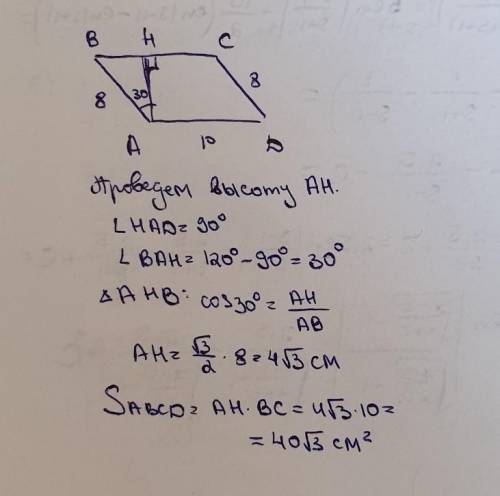 B H C
8 30 8
A 10 D
Проведем высоту AH.
∠HAD = 90°
∠BAH = 120° - 90° = 30°
△AHB: cos30° = AH/AB
AH = √3/2 · 8 = 4√3 см
SABCD = AH · BC = 4√3 · 10 =
= 40√3 см²